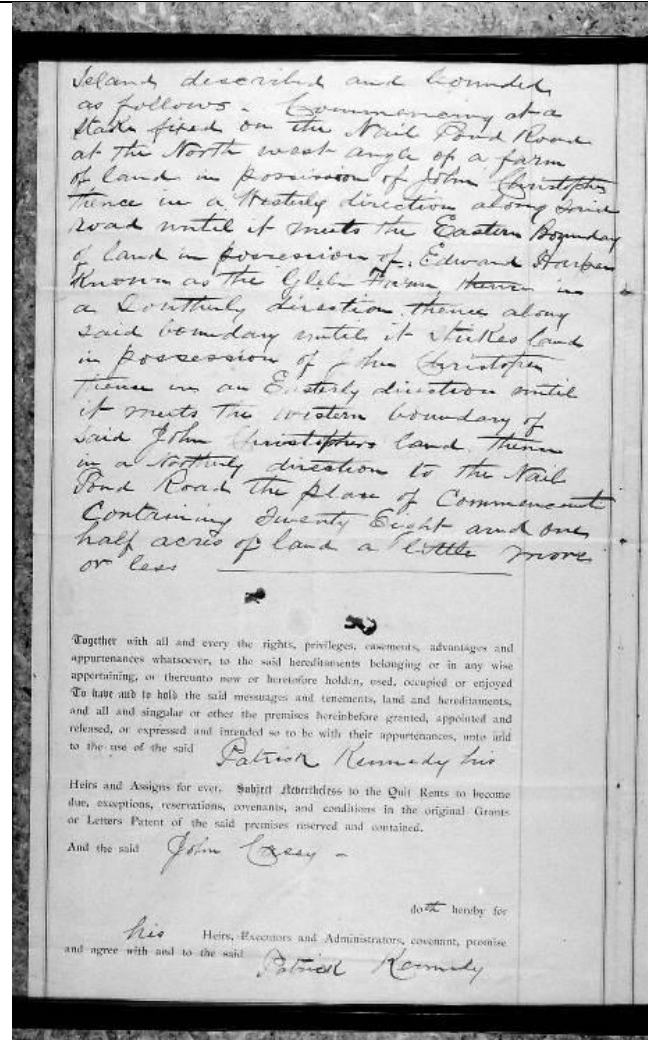 Island described and bounded
as follows. Commencing at a
stake fixed on the Nail Pond Road
at the North west angle of a farm
of land in possession of John Christopher
thence in a Westerly direction along said
road until it meets the Eastern Boundary
of land in possession of Edward Harper
Known as the Glebe Farm, thence in
a Southerly direction thence along
said boundary until it strikes land
in possession of John Christopher
thence in an Easterly direction until
it meets the western boundary of
said John Christophers land thence
in a Northerly direction to the Nail
Pond Road the place of Commencement
Containing Twenty Eight and one
half acres of land a little more
or less
Together with all and every the rights, privileges, easements, advantages and
appurtenances whatsoever, to the said hereditaments belonging or in any wise
appertaining, or thereunto now or heretofore holden, used, occupied or enjoyed
To have and to hold the said messuages and tenements, land and hereditaments,
and all and singular or other the premises hereinbefore granted, appointed and
released, or expressed and intended so to be with their appurtenances, unto and
to the use of the said Patrick Kennedy his
Heirs and Assigns for ever. Subject Nevertheless to the Quit Rents to become
due, exceptions, reservations, covenants, and conditions in the original Grants
or Letters Patent of the said premises reserved and contained.
And the said John Casey -
doth hereby for
his Heirs, Executors and Administrators, covenant, promise
and agree with and to the said Patrick Kennedy